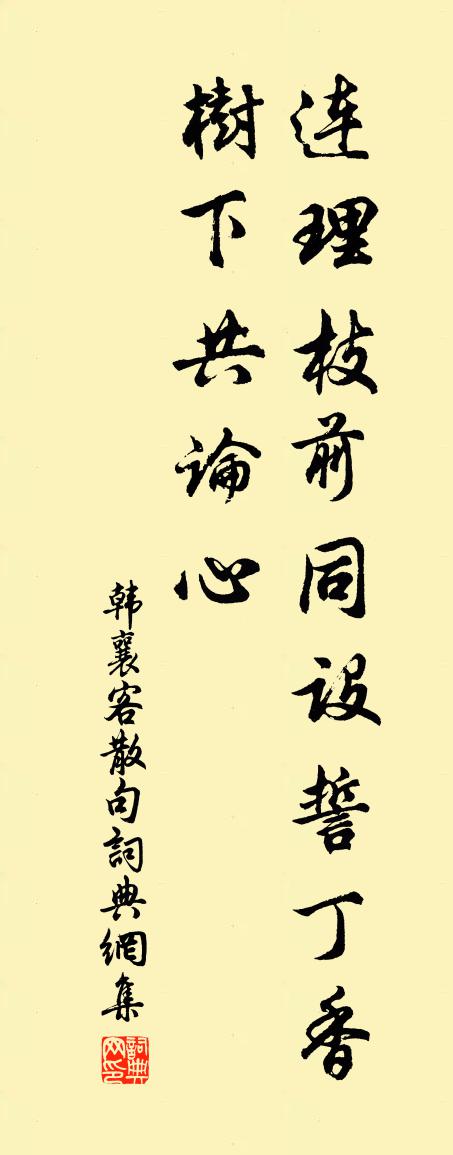 連理枝前同設誓丁香
樹下共論心
韩襄客散句詞典網集
詞典网印